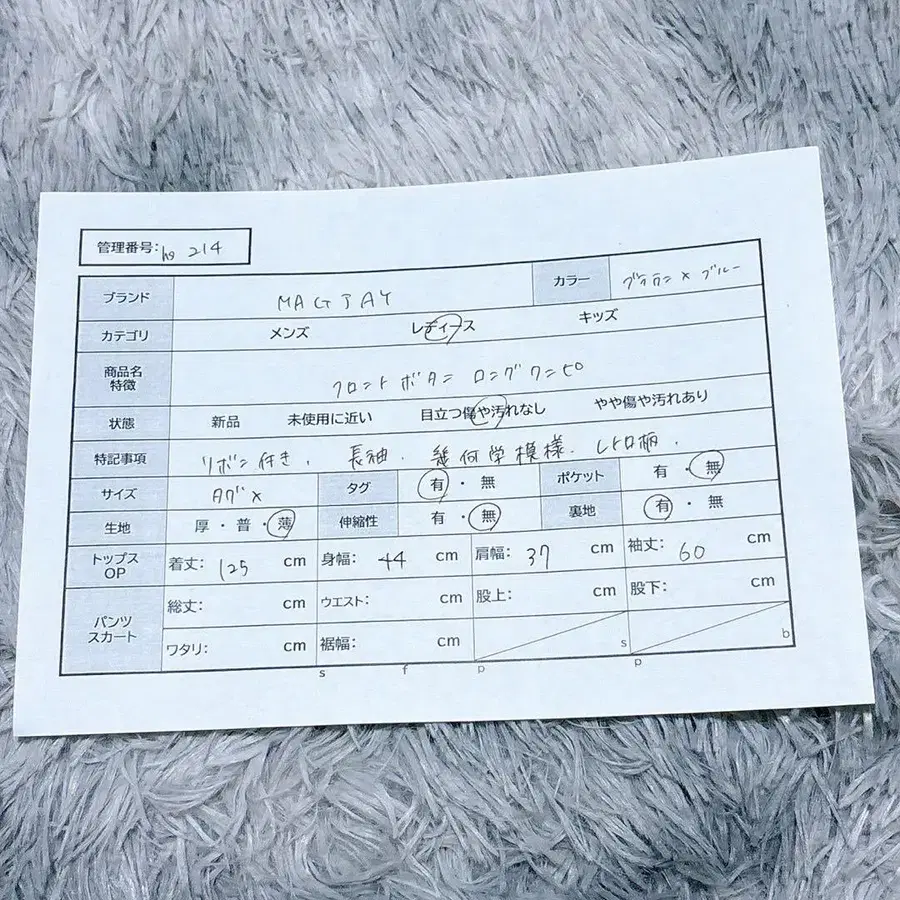 管理番号: hg 214
ブランド MAGJAY カラー ブラウン × ブルー
カテゴリ メンズ レディース キッズ
商品名 特徴 フロントボタン ロングワンピ
状態 新品 未使用に近い 目立つ傷や汚れなし やや傷や汚れあり
特記事項 リボン付き. 長袖. 幾何学模様. レトロ柄.
サイズ タグ× タグ 有・無 ポケット 有・無
生地 厚・普・薄 伸縮性 有・無 裏地 有・無
トップス OP 着丈: 125 cm 身幅: 44 cm 肩幅: 37 cm 袖丈: 60
パンツ スカート 総丈: cm ウエスト: cm 股上: cm 股下: cm
ワタリ: cm 裾幅: cm s b
s f p p